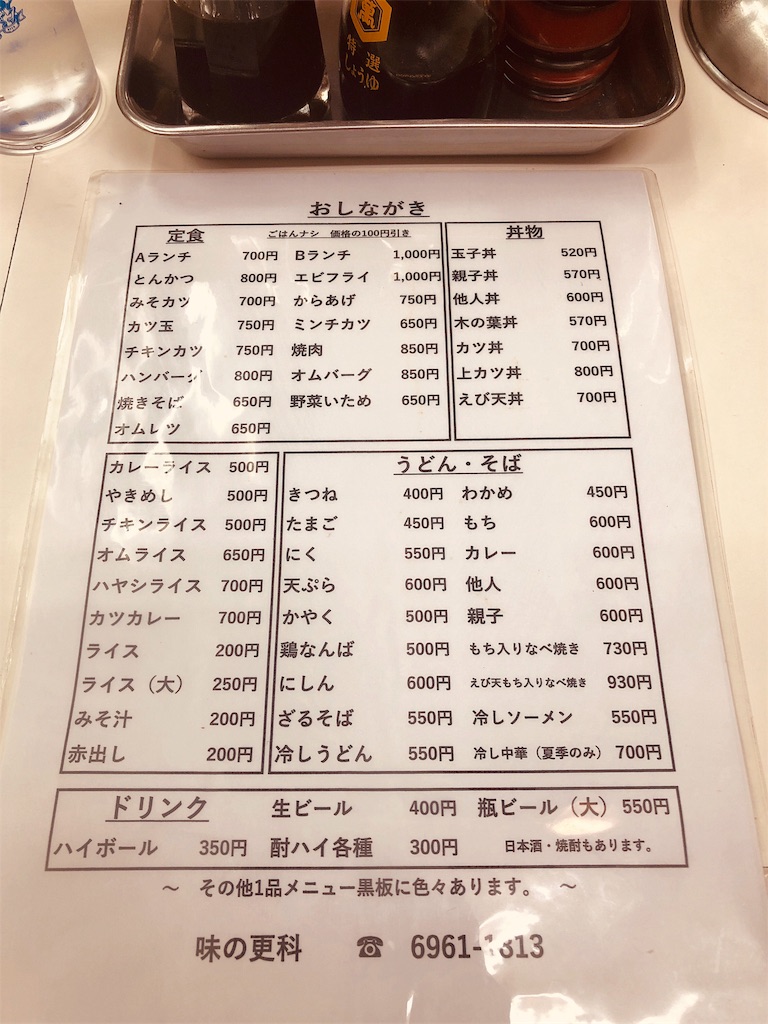 特選
しょうゆ
おしながき
定食 ごはんナシ 価格の100円引き
Aランチ 700円 Bランチ 1,000円
とんかつ 800円 エビフライ 1,000円
みそカツ 700円 からあげ 750円
カツ玉 750円 ミンチカツ 650円
チキンカツ 750円 焼肉 850円
ハンバーグ 800円 オムバーグ 850円
焼きそば 650円 野菜いため 650円
オムレツ 650円
丼物
玉子丼 520円
親子丼 570円
他人丼 600円
木の葉丼 570円
カツ丼 700円
上カツ丼 800円
えび天丼 700円
カレーライス 500円
やきめし 500円
チキンライス 500円
オムライス 650円
ハヤシライス 700円
カツカレー 700円
ライス 200円
ライス（大） 250円
みそ汁 200円
赤出し 200円
うどん・そば
きつね 400円 わかめ 450円
たまご 450円 もち 600円
にく 550円 カレー 600円
天ぷら 600円 他人 600円
かやく 500円 親子 600円
鶏なんば 500円 もち入りなべ焼き 730円
にしん 600円 えび天もち入りなべ焼き 930円
ざるそば 550円 冷しソーメン 550円
冷しうどん 550円 冷し中華（夏季のみ） 700円
ドリンク 生ビール 400円 瓶ビール（大） 550円
ハイボール 350円 酎ハイ各種 300円 日本酒・焼酎もあります。
～ その他1品メニュー黒板に色々あります。 ～
味の更科 ☎ 6961-1813